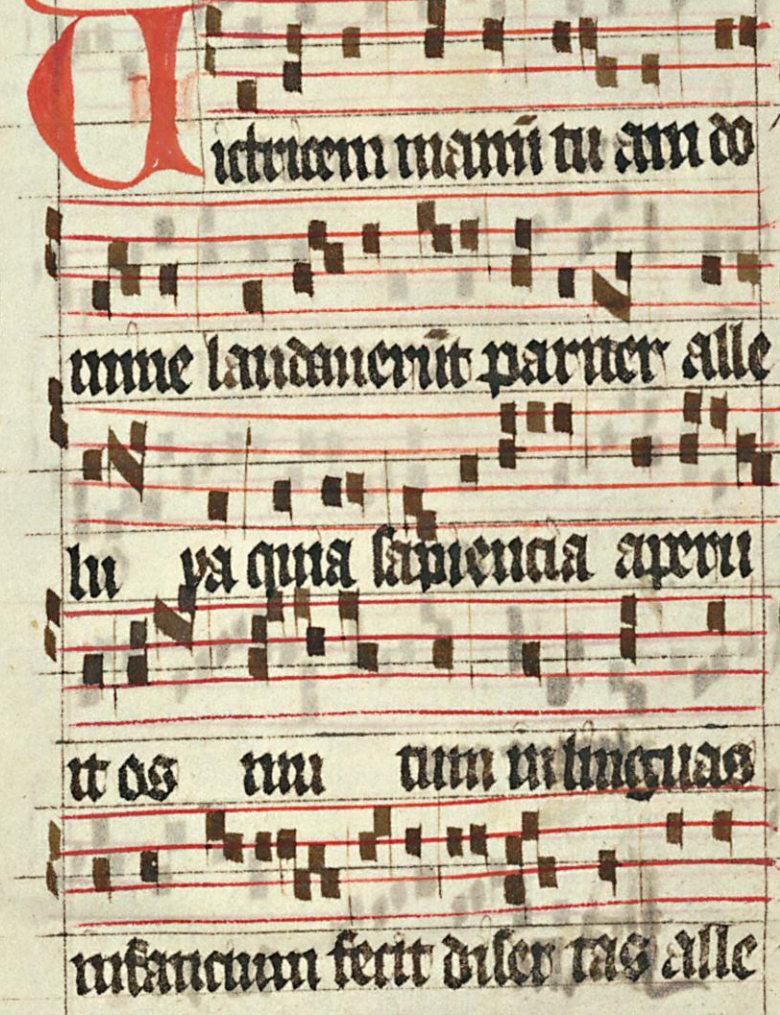 Victricem manū tu am do
mine laudauerūt pariter alle
lu ya quia sapiencia aperu
it os mu tum in linguas
infancium fecit diser tas alle